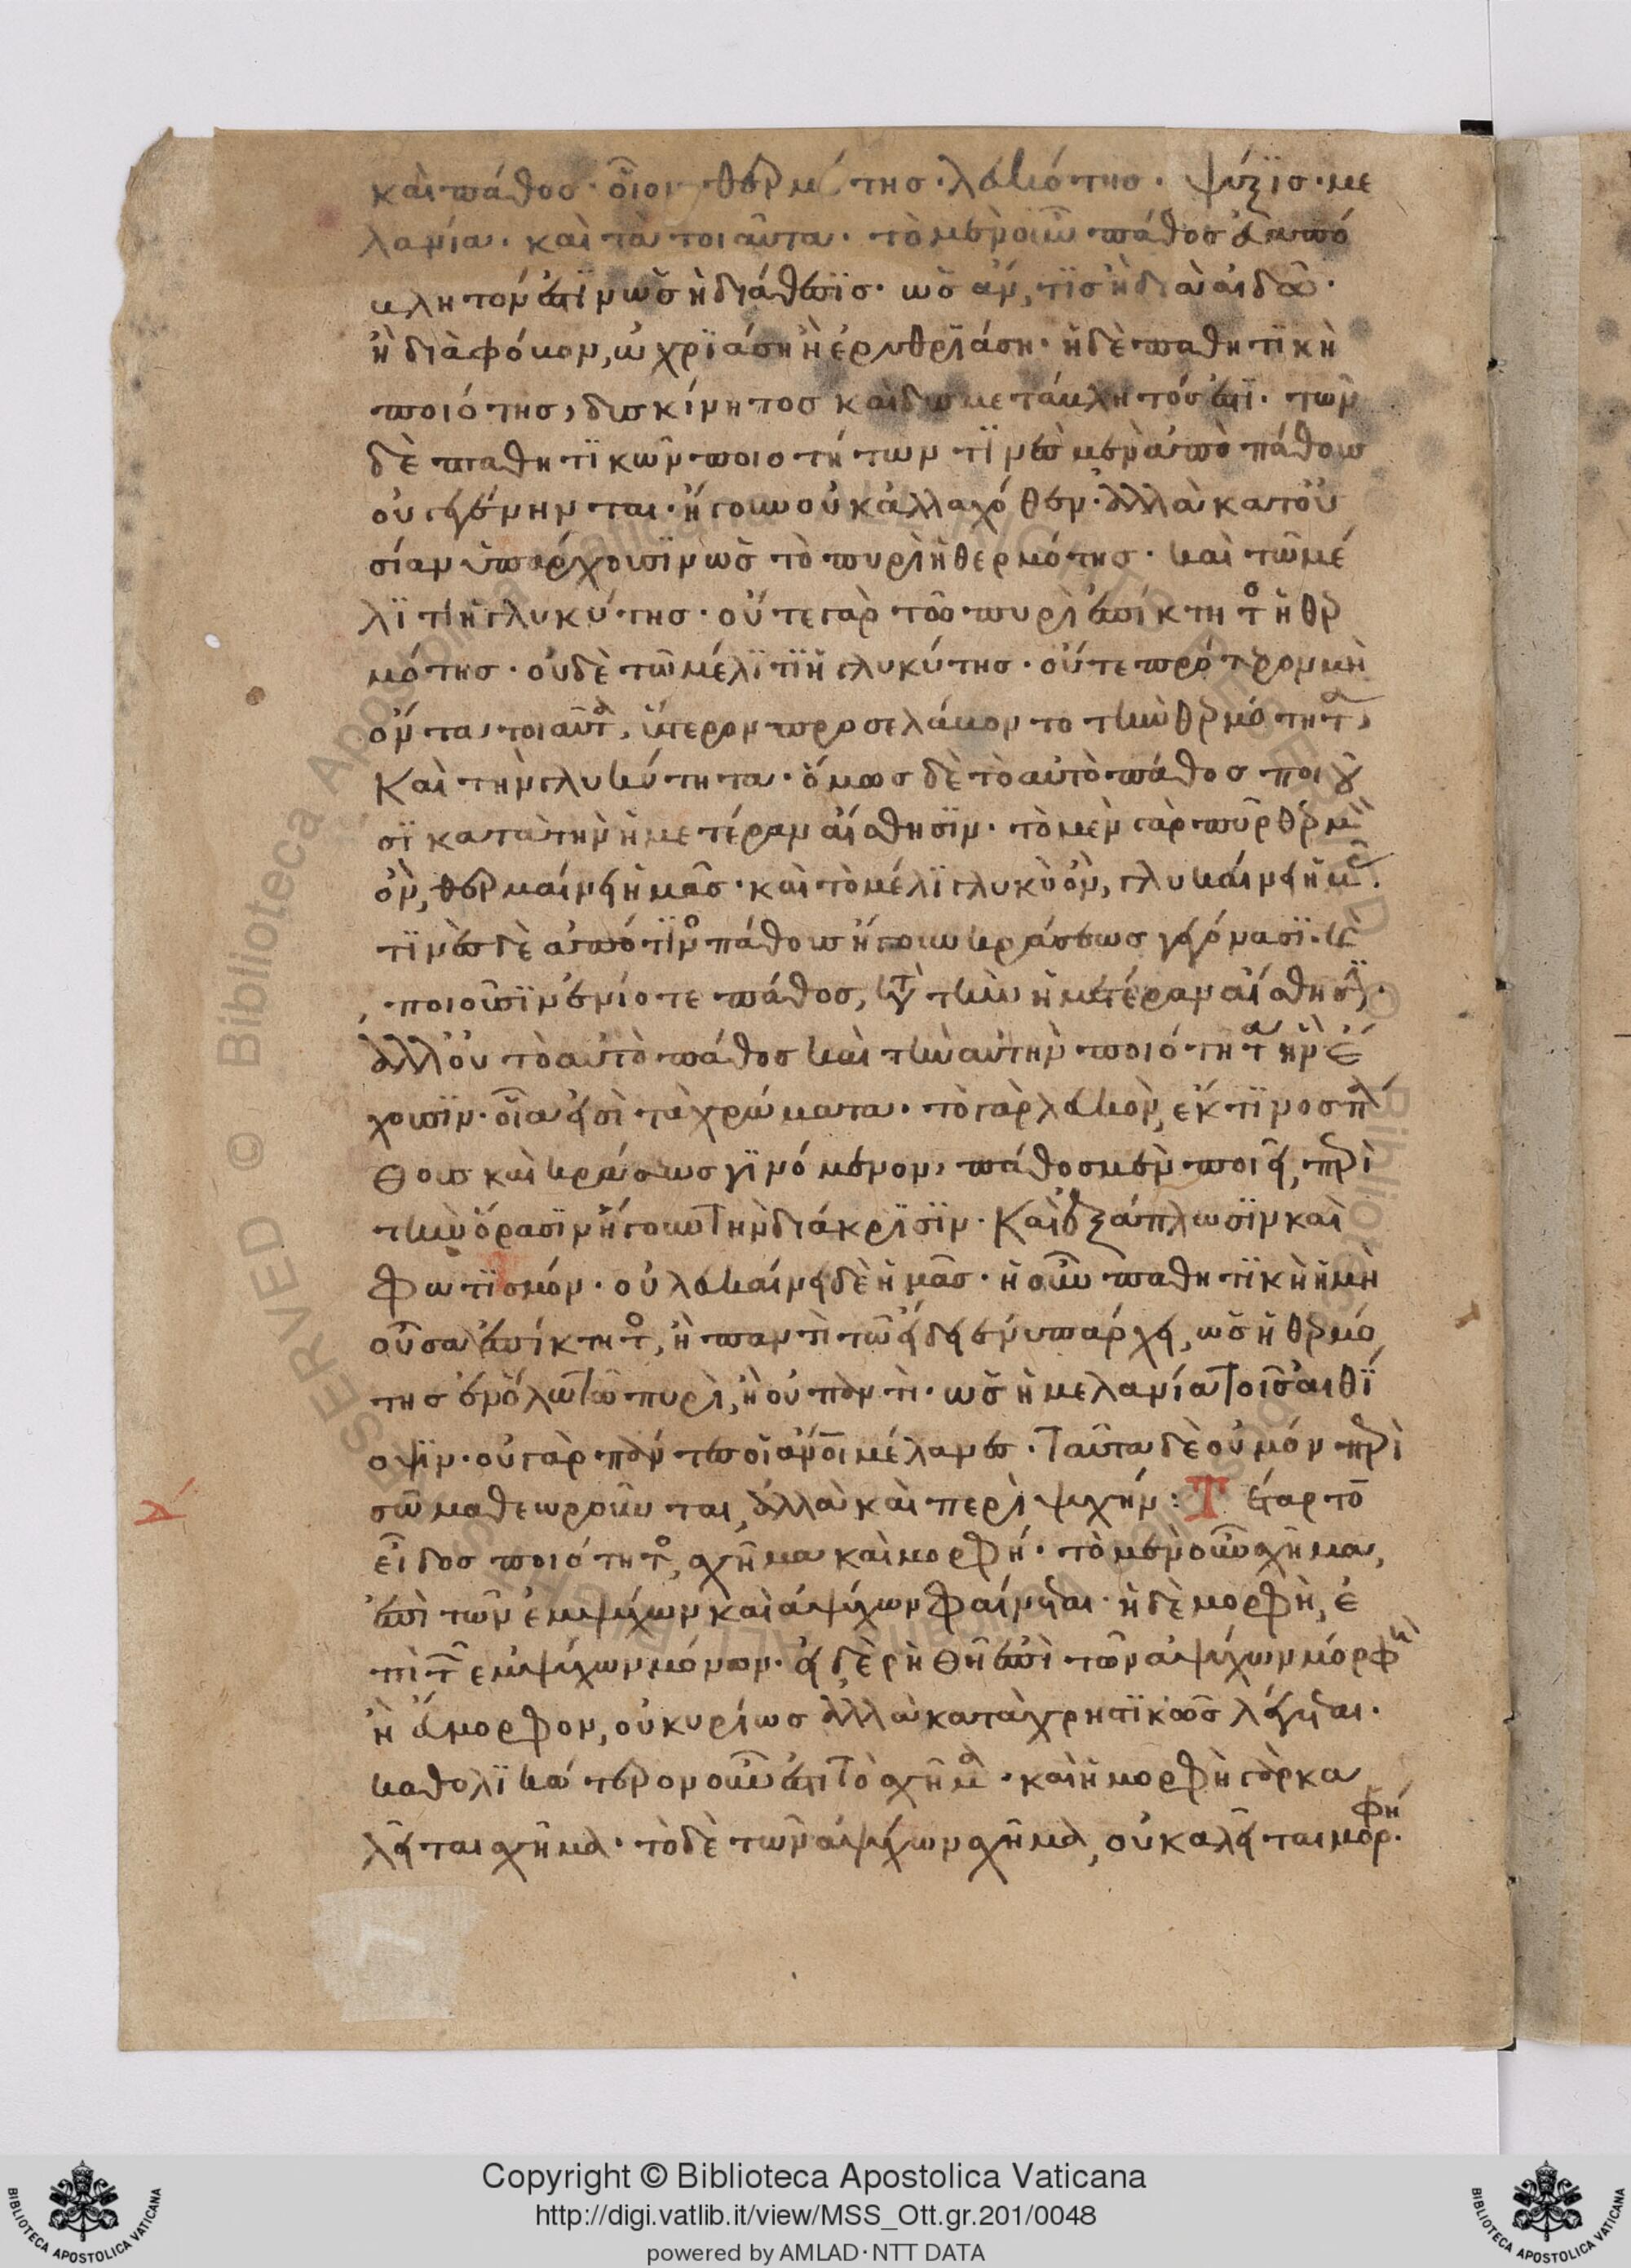 καὶ πάθος· οἷον θερμότης· λευκότης· ψύξις· με
λανία· καὶ τὰ τοιαῦτα· τὸ μὲν οὖν πάθος εὐαπό
βλητόν ἐστιν ὡς ἡ διάθεσις· ὡς ἄν, τις ἢ διὰ αἰδῶ·
ἢ διὰ φόβον, ὠχριάση ἢ ἐρυθριάση· ἡ δὲ παθητικὴ
ποιότης, δυσκίνητος καὶ δυσμετάβλητός ἐστι· τῶν
δὲ παθητικῶν ποιοτήτων τινὲς μὲν ἀπὸ πάθους
οὐ γεγένηνται· ἤγουν οὐκ ἀλλαχόθεν· ἀλλὰ κατ' οὐ
σίαν ὑπάρχουσιν ὡς τὸ πυρὶ ἡ θερμότης· καὶ τῶ μέ
λιτι ἡ γλυκύτης· οὔτε γὰρ τῶ πυρὶ ἐπίκτητος ἡ θερ
μότης· οὐδὲ τῶ μέλιτι ἡ γλυκύτης· οὔτε πρότερον μὴ
ὄντα τοιαῦτα, ὕστερον προσελάβοντο τὴν θερμότητα,
καὶ τὴν γλυκύτητα· ὅμως δὲ τὸ αὐτὸ πάθος ποιοῦ
σι κατὰ τὴν ἡμετέραν αἴσθησιν· τὸ μὲν γὰρ πῦρ θερμὸν
ὂν, θερμαίνει ἡμᾶς· καὶ τὸ μέλι γλυκὺ ὂν, γλυκαίνει ἡμᾶς.
τινὲς δὲ ἀπό τινος πάθους ἤγουν κράσεως γεγόνασι· καὶ
ποιοῦσιν ἐνίοτε πάθος, κατὰ τὴν ἡμετέραν αἴσθησιν·
ἀλλ' οὐ τὸ αὐτὸ πάθος καὶ τὴν αὐτὴν ποιότητα ἣν ἔ
χουσιν· οἷα εἰσὶ τὰ χρώματα· τὸ γὰρ λευκὸν, ἔκ τινος πά
θους καὶ κράσεως γινόμενον, πάθος μὲν ποιεῖ, περὶ
τὴν ὅρασιν ἤγουν τὴν διάκρισιν· καὶ ἐξάπλωσιν καὶ
φωτισμόν· οὐ λευκαίνει δὲ ἡμᾶς· ἡ οὖν παθητικὴ ἢ μὴ
οὖσα ἐπίκτητος, ἢ παντὶ τῶ εἴδει ἐνυπάρχει, ὡς ἡ θερμό
της ἐν ὅλω τῶ πυρὶ, ἢ οὐ παντὶ· ὡς ἡ μελανία τοῖς αἰθί
οψιν· οὐ γὰρ πάντες οἱ ἄνοι μέλανες· ταῦτα δὲ οὐ μόν περὶ
σῶμα θεωροῦνται, ἀλλὰ καὶ περὶ ψυχήν: Τέταρτον
εἶδος ποιότητος, σχῆμα καὶ μορφή· τὸ μὲν οὖν σχῆμα,
ἐπὶ τῶν ἐμψύχων καὶ ἀψύχων φαίνεται· ἡ δὲ μορφὴ, ἐ
πὶ τῶν ἐμψύχων μόνων· εἰ δὲ ρηθῆ ἐπὶ τῶν ἀψύχων μόρφὴ
ἢ ἄμορφον, οὐ κυρίως ἀλλὰ καταχρηστικῶς λέγεται.
καθολικώτερον οὖν ἐστι τὸ σχῆμα· καὶ ἡ μορφὴ γὰρ κα
λεῖται σχῆμα· τὸ δὲ τῶν ἀψύχων σχῆμα, οὐ καλεῖται μορφή.
δ´
Copyright © Biblioteca Apostolica Vaticana
http://digi.vatlib.it/view/MSS_Ott.gr.201/0048
powered by AMLAD·NTT DATA
BIBLIOTECA APOSTOLICA VATICANA
BIBLIOTECA APOSTOLICA VATICANA